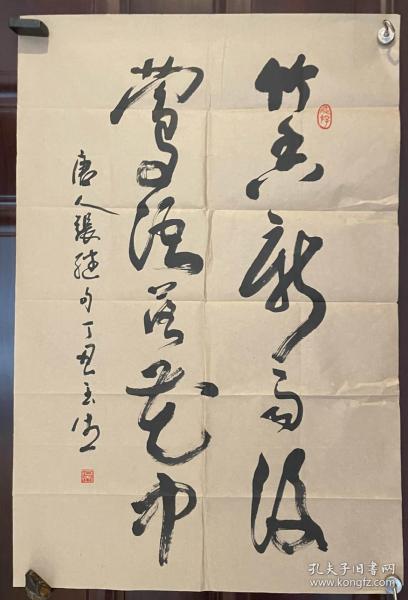 竹香新雨後
鶯語落花中
唐人張繼句丁丑
孔夫子旧书网
www.kongfz.com